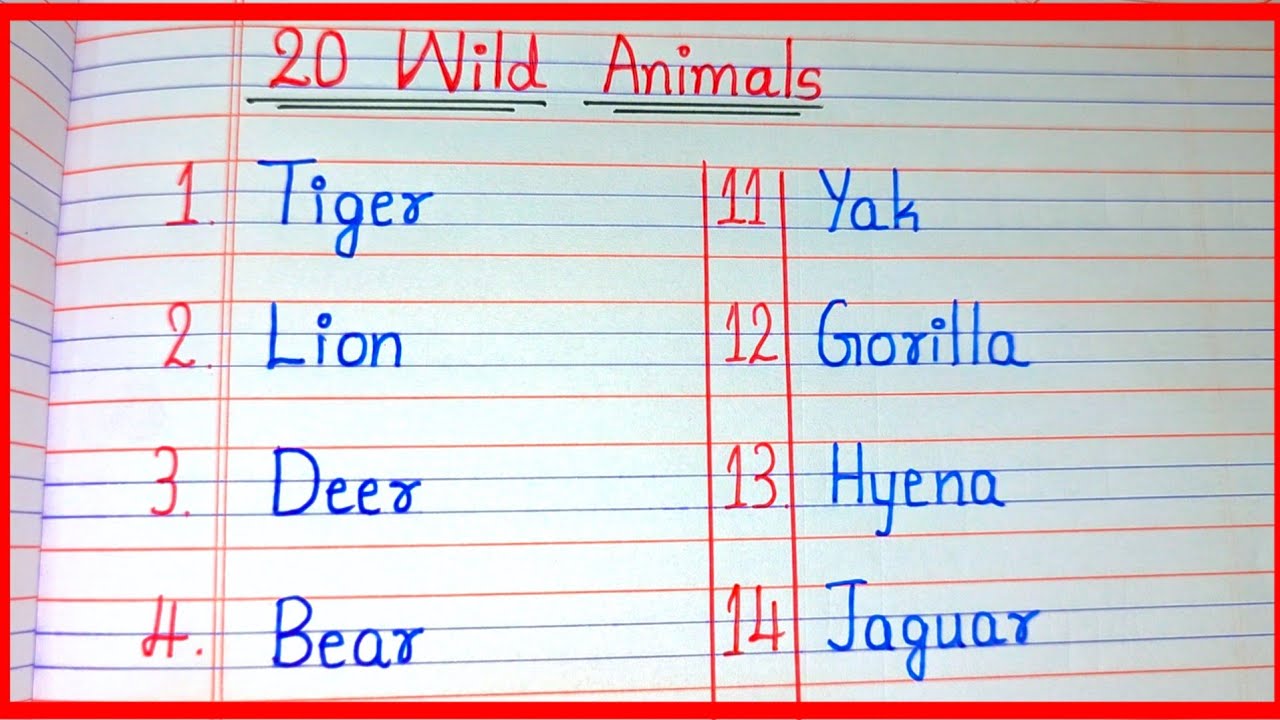 20 Wild Animals
1. Tiger
2. Lion
3. Deer
4. Bear
11 Yak
12 Gorilla
13. Hyena
14 Jaguar